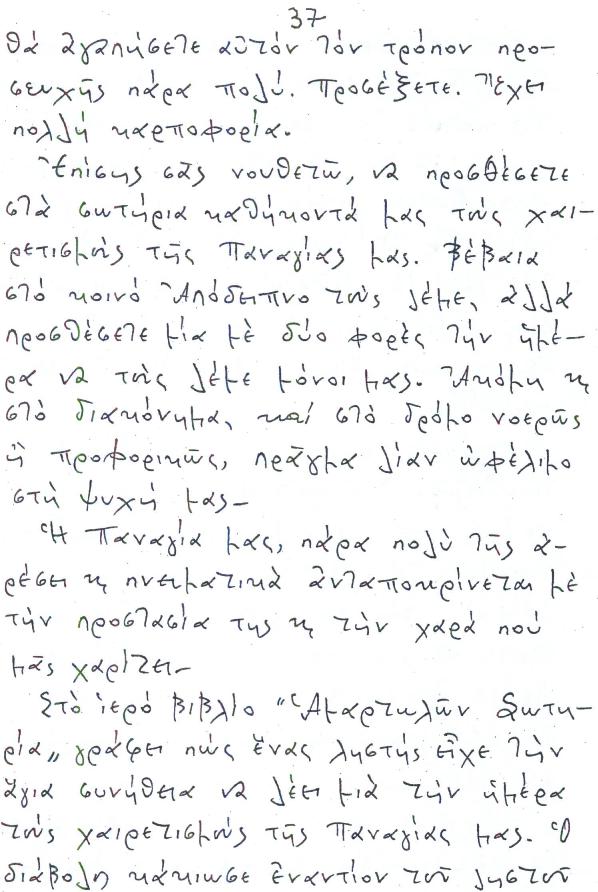 37
θά ἀγαπήσετε αὐτόν τόν τρόπον προ-
σευχῆς πάρα πολύ. Προσέξετε. Ἔχει
πολλή καρποφορία.
Ἐπίσης σᾶς νουθετῶ, νά προσθέσετε
στὰ σωτήρια καθήκοντά μας τούς χαι-
ρετισμούς τῆς Παναγίας μας. Βέβαια
στό κοινό Ἀπόδειπνο τούς λέμε, ἀλλά
προσθέσετε μία μὲ δύο φορὲς τήν ἡμέ-
ρα νά τούς λέμε μόνοι μας. Ἀκόμη κ
στό διακόνημα, καί στό δρόμο νοερῶς
ἤ προφορικῶς, πρᾶγμα λίαν ὠφέλιμο
στή ψυχή μας-
Ἡ Παναγία μας, πάρα πολὺ τῆς ἀ-
ρέσει κ πνευματικὰ ἀνταποκρίνεται μὲ
τὴν προστασία της κ τὴν χαρά πού
μᾶς χαρίζει-
Στὸ ἱερό βιβλίο "Ἁμαρτωλῶν Σωτη-
ρία„ γράφει πώς ἕνας ληστής εἶχε τὴν
ἅγια συνήθεια νά λέει μιὰ τὴν ἡμέρα
τούς χαιρετισμούς τῆς Παναγίας μας. Ὁ
διάβολη κάκιωσε ἐναντίον τοῦ ληστοῦ